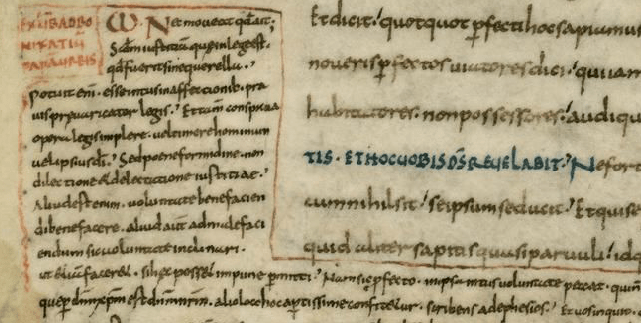 EX LIB AD BO
NIFATIŪ
PAPA URBIS
Ne moveat quod ait;
Scđm iustitiam que in lege est.
qđ fuerit sine querella.
Potuit enī. esse intus in affectionib. pra
uis prevaricator legis. Et tam conspicua
opera legis implere. vel timore hominum
vel ipsius dī. Sed poene formidine. non
dilectione & delectatione iustitiae.
Aliud est enim. voluntate benefacien
di benefacere. aliud aūt ad malefaci
endum sic voluntate inclinari.
ut etiā faceret. si hec posset impune permitti. Nam sic profecto. in ipsa intus voluntate peccat.
alio loco hoc apertissime confitetur. scribens ad ephesios. Et vos inquit.
Et dicit. quotquot p̄fecti hoc sapiamus
noveris p̄fectos viatores dici. qui iam
habitatores. non possessores. audi qu
TIS. ET HOC VOBIS DS̄ REVELABIT. Ne fort
cum nihil sit. se ipsum seducit. Et qui se
quid aliter sapitis quasi parvuli. id q